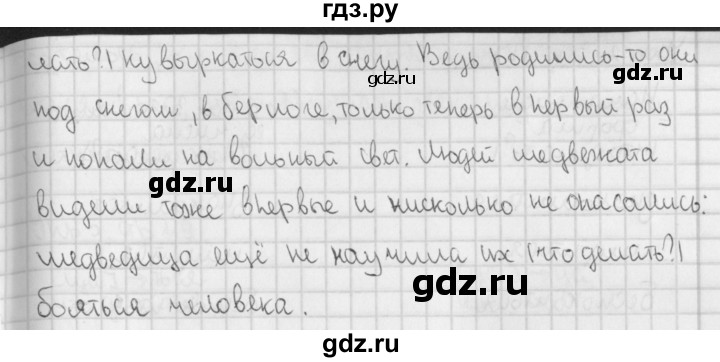 гдз.ру
лать?) кувыркаться в снегу. Ведь родились-то они
gdz.ru
под снегом, в берлоге, только теперь в первый раз
и попали на вольный свет. Людей медвежата
gdz.ru
видели тоже впервые и нисколько не опасались:
медведица ещё не научила их (что делать?)
gdz.ru
бояться человека.
gdz.ru